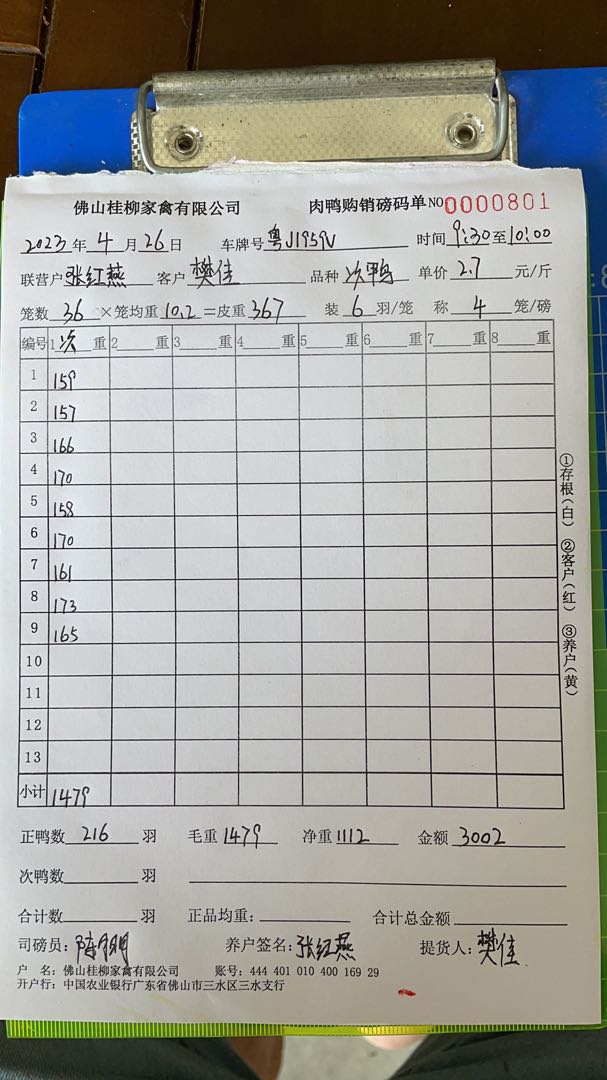 佛山桂柳家禽有限公司 肉鸭购销磅码单 NO 0000801
2023年4月26日 车牌号 粤J1959V 时间 9:30至10:00
联营户 张红燕 客户 樊佳 品种 次鸭 单价 2.7 元/斤
笼数 36 ×笼均重 10.2 =皮重 367 装 6 羽/笼 称 4 笼/磅
编号 1次重 2 重 3 重 4 重 5 重 6 重 7 重 8 重
1 159
2 157
3 166
4 170
5 158
6 170
7 161
8 173
9 165
10
11
12
13
小计 1479
正鸭数 216 羽 毛重 1479 净重 1112 金额 3002
次鸭数 羽
合计数 羽 正品均重: 合计总金额
司磅员: 养户签名: 张红燕 提货人: 樊佳
户 名: 佛山桂柳家禽有限公司 账号: 444 401 010 400 169 29
开户行: 中国农业银行广东省佛山市三水区三水支行
①存根(白) ②客户(红) ③养户(黄)